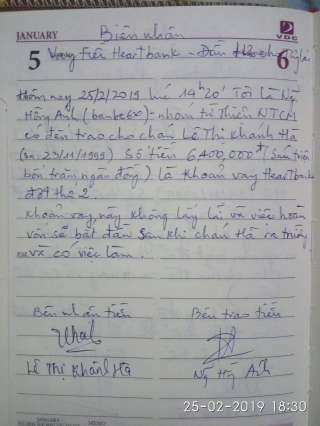 JANUARY
VDC
Biên nhận
5 Vay Tiền Heartbank - Đến 6
Hôm nay 25/2/2019 lúc 14h20' Tôi là Ng
Hồng Anh (banbe6x) - nhóm từ Thiện NTCM
có đến trao cho cháu Lê Thị Khánh Hà
(sn: 23/11/1999) Số tiền 6400,000đ (Sáu triệu
bốn trăm ngàn đồng) là khoản vay Heartbank
đợt thứ 2.
Khoản vay này không lấy lãi và việc hoàn
vốn sẽ bắt đầu sau khi cháu Hà ra trường
PM và có việc làm.
Bên nhận tiền Bên trao tiền
Lê Thị Khánh Hà Ng Hg Anh
JANUARY MEMO
25-02-2019 18:30